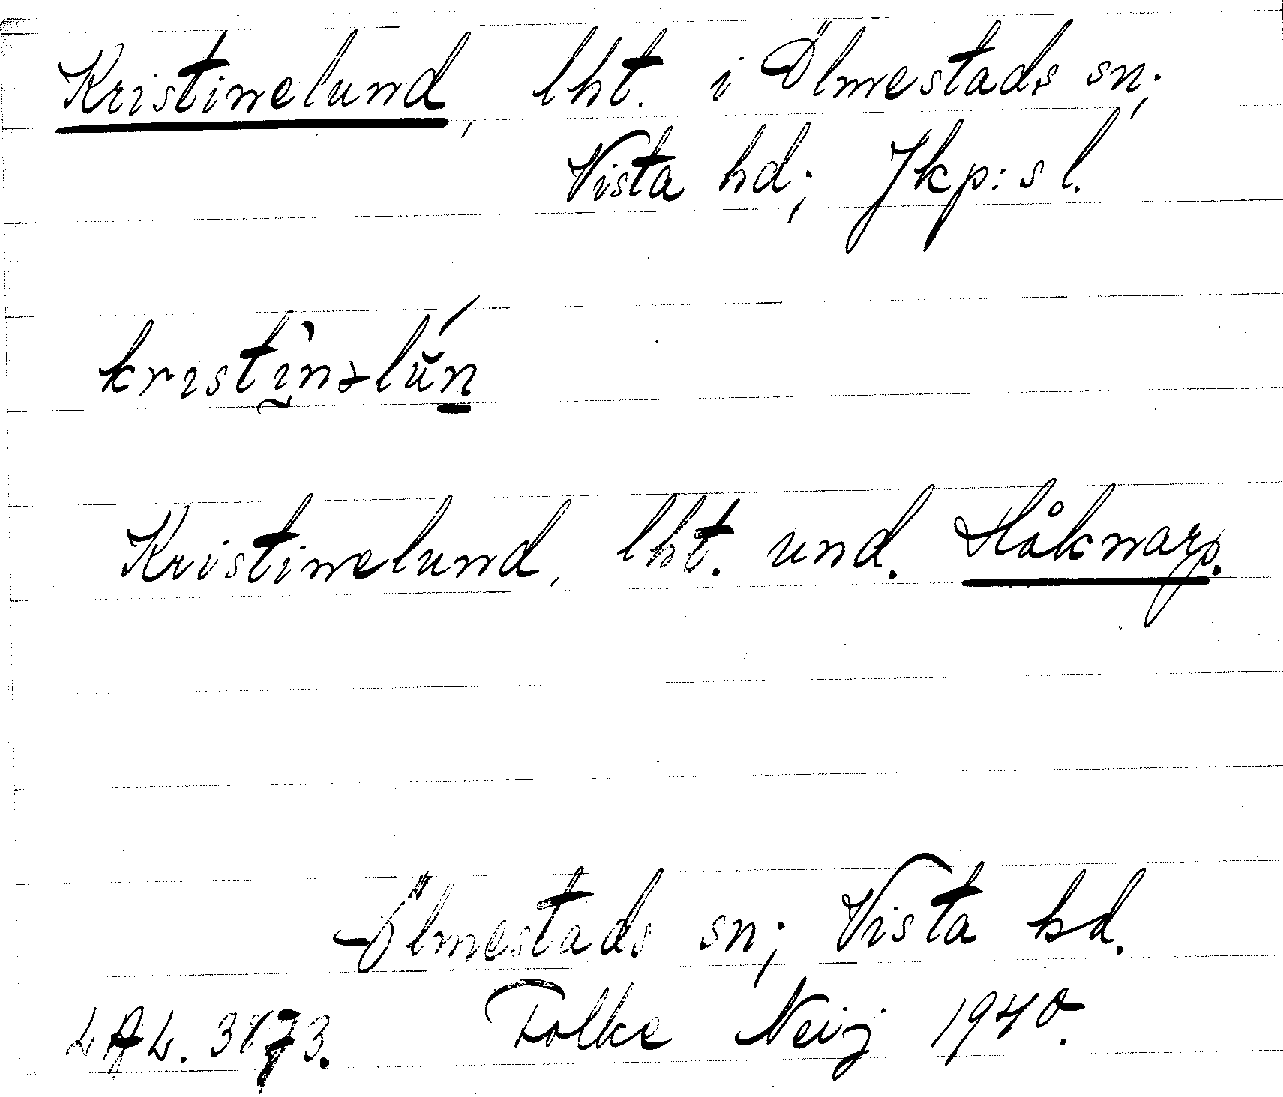 Kristinelund, lht. i Ölmestads sn;
Vista hd; Jkp:s l.
kristìnəlún
Kristinelund, lht. und. Håknarp.
Ölmestads sn; Vista hd.
LAL. 3873. Folke Neij 1940.